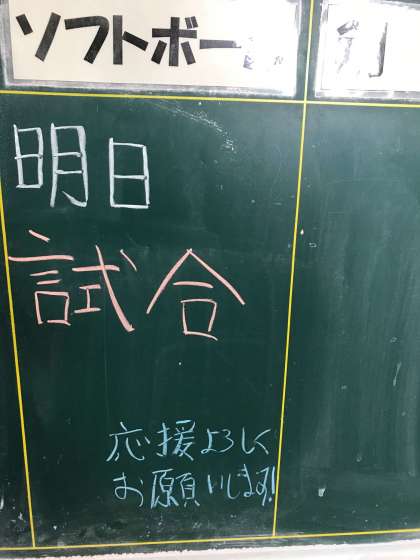 ソフトボー
明日
試合
応援よろしく
お願いします!